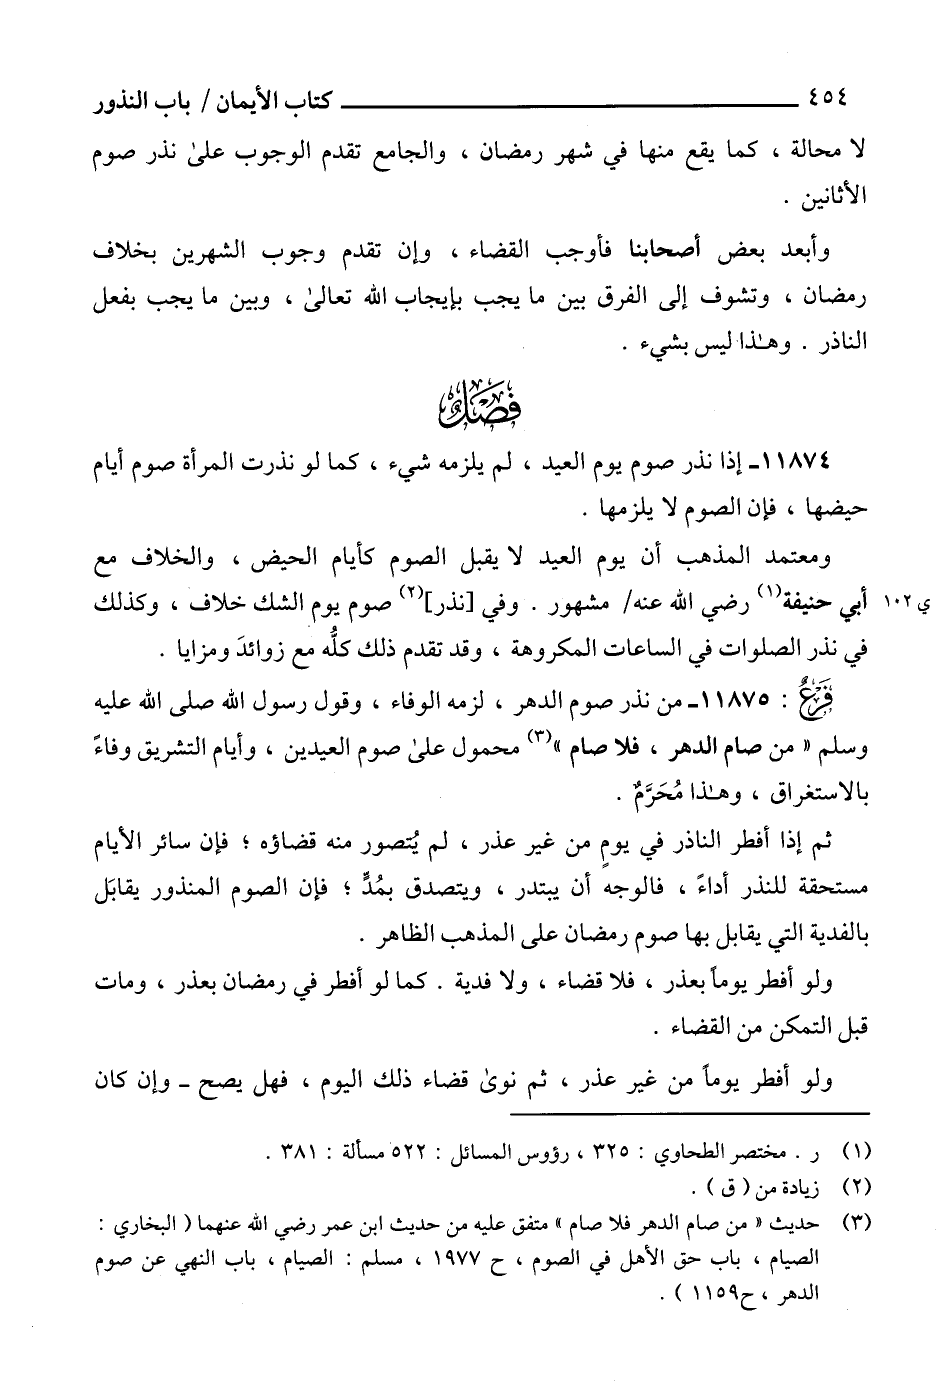 ٤٥٤ ــــــــــــــــــــ كتاب الأيمان / باب النذور
لا محالة ، كما يقع منها في شهر رمضان ، والجامع تقدم الوجوب علىٰ نذر صوم
الأثانين .
وأبعد بعض أصحابنا فأوجب القضاء ، وإن تقدم وجوب الشهرين بخلاف
رمضان ، وتشوف إلى الفرق بين ما يجب بإيجاب الله تعالىٰ ، وبين ما يجب بفعل
الناذر . وهـٰذا ليس بشيء .
فصل
١١٨٧٤ـ إذا نذر صوم يوم العيد ، لم يلزمه شيء ، كما لو نذرت المرأة صوم أيام
حيضها ، فإن الصوم لا يلزمها .
ومعتمد المذهب أن يوم العيد لا يقبل الصوم كأيام الحيض ، والخلاف مع
ي ١٠٢ أبي حنيفة(١) رضي الله عنه/ مشهور . وفي [نذر](٢) صوم يوم الشك خلاف ، وكذلك
في نذر الصلوات في الساعات المكروهة ، وقد تقدم ذلك كلُّه مع زوائدَ ومزايا .
فَرْعٌ : ١١٨٧٥ـ من نذر صوم الدهر ، لزمه الوفاء ، وقول رسول الله صلى الله عليه
وسلم « من صام الدهر ، فلا صام »(٣) محمول علىٰ صوم العيدين ، وأيام التشريق وفاءً
بالاستغراق ، وهـٰذا مُحَرَّمٌ .
ثم إذا أفطر الناذر في يومٍ من غير عذر ، لم يُتصور منه قضاؤه ؛ فإن سائر الأيام
مستحقة للنذر أداءً ، فالوجه أن يبتدر ، ويتصدق بمُدٍّ ؛ فإن الصوم المنذور يقابَل
بالفدية التي يقابل بها صوم رمضان على المذهب الظاهر .
ولو أفطر يوماً بعذر ، فلا قضاء ، ولا فدية . كما لو أفطر في رمضان بعذر ، ومات
قبل التمكن من القضاء .
ولو أفطر يوماً من غير عذر ، ثم نوىٰ قضاء ذلك اليوم ، فهل يصح ـ وإن كان
(١) ر . مختصر الطحاوي : ٣٢٥ ، رؤوس المسائل : ٥٢٢ مسألة : ٣٨١ .
(٢) زيادة من ( ق ) .
(٣) حديث « من صام الدهر فلا صام » متفق عليه من حديث ابن عمر رضي الله عنهما ( البخاري :
الصيام ، باب حق الأهل في الصوم ، ح ١٩٧٧ ، مسلم : الصيام ، باب النهي عن صوم
الدهر ، ح١١٥٩ ) .